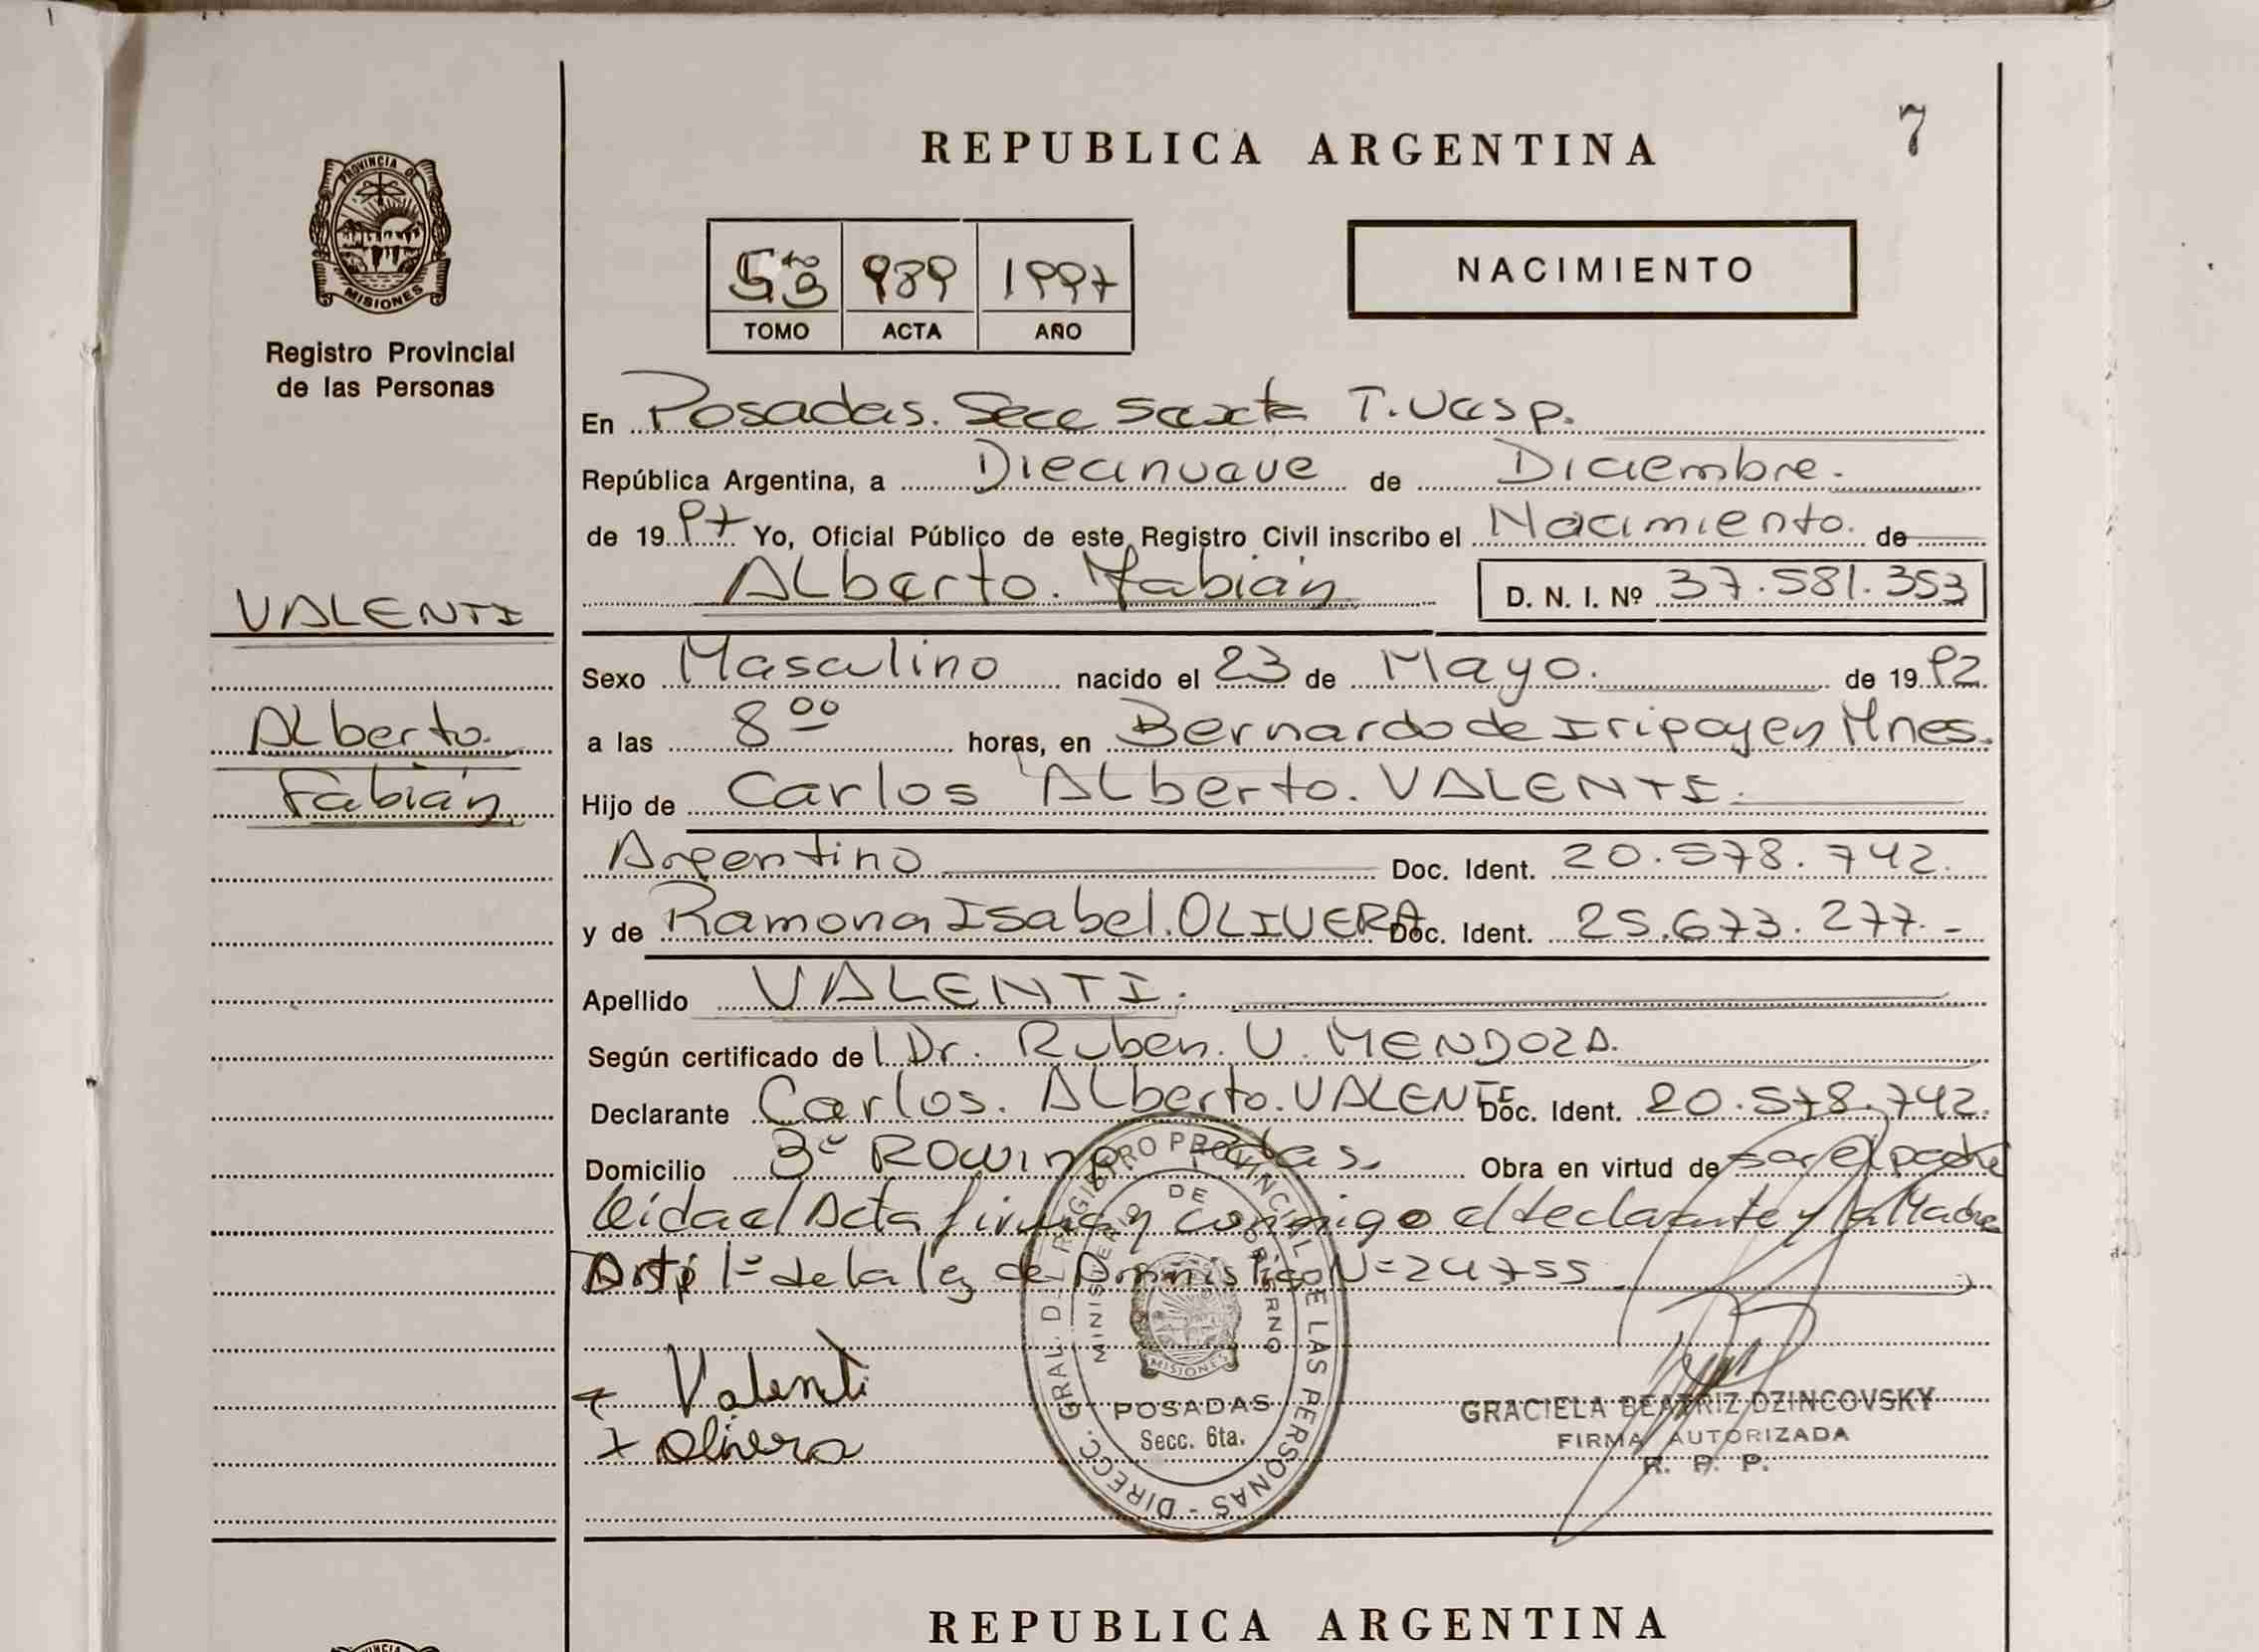 7
REPUBLICA ARGENTINA
PROVINCIA DE
MISIONES
Registro Provincial
de las Personas
989 1997
TOMO ACTA AÑO
NACIMIENTO
En Posadas. Secc Sexta
República Argentina, a Diecinueve de Diciembre.
de 1997 Yo, Oficial Público de este Registro Civil inscribo el Nacimiento. de
Alberto. Fabián D. N. I. Nº 37.581.353
VALENTI
Sexo Masculino nacido el 23 de Mayo. de 1992
Alberto.
a las 8 00 horas, en Bernardo de Irigoyen Mnes.
Fabián
Hijo de Carlos Alberto. VALENTI.
Argentino Doc. Ident. 20.578.742.
y de Ramona Isabel. OLIVERA Doc. Ident. 25.673.277.-
Apellido VALENTI.
Según certificado del Dr. Ruben. U. MENDOZA.
Declarante Carlos. Alberto. VALENTI Doc. Ident. 20.578.742.
Domicilio 3º Rowing Pdas. Obra en virtud de ser el padre
leida el Acta firman conmigo el declarante y la Madre
1º de la ley de Nº 24755
Valenti
Olivera
DIRECC. GRAL. DEL REGISTRO PROVINCIAL DE LAS PERSONAS
MINISTERIO DE GOBIERNO
MISIONES
POSADAS
Secc. 6ta.
GRACIELA BEATRIZ DZINCOVSKY
FIRMA AUTORIZADA
R. P. P.
REPUBLICA ARGENTINA